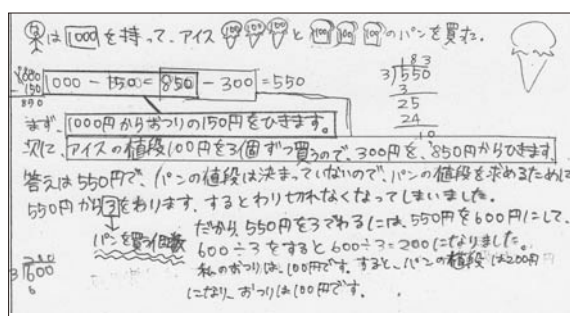 は 1000 を持って、アイス 100 100 100 と 100 100 100 のパンを買た。
1000 - 150 = 850 - 300 = 550
1000
150
850
183
3)550
3
25
24
10
まず、1000円からおつりの150円をひきます。
次に、アイスの値段100円を3個ずつ買うので、300円を、850円からひきます。
答えは550円で、パンの値段は決まっていないので、パンの値段を求めるために
550円から3をわります。するとわり切れなくなってしまいました。
パンを買う個数
だから、550円を3でわるには、550円を600円にして、
600÷3をすると600÷3=200になりました。
私のおつりは、100円です。すると、パンの値段は200円
になり、おつりは100円です。
200
3)600
6